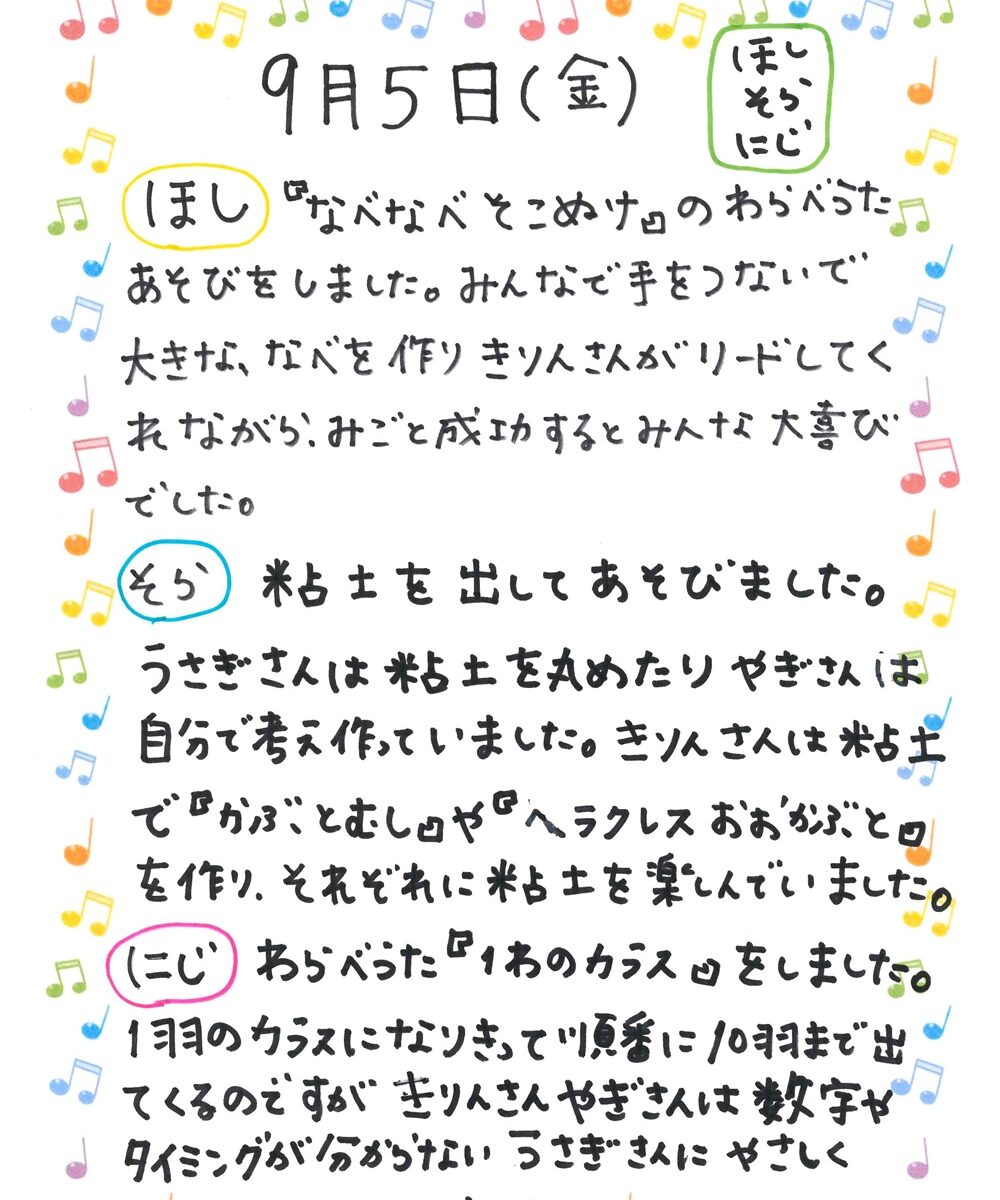 9月5日(金)
ほし
そら
にじ
ほし 『なべなべ そこぬけ』の わらべうた
あそびをしました。みんなで手をつないで
大きな、なべを作り きりんさんがリードしてく
れながら、みごと成功するとみんな大喜び
でした。
そら 粘土を出してあそびました。
うさぎさんは粘土を丸めたり やぎさんは
自分で考え作っていました。きりんさんは粘土
で『かぶとむし』や『ヘラクレスおおかぶと』
を作り、それぞれに粘土を楽しんでいました。
にじ わらべうた『1わのカラス』をしました。
1羽のカラスになりきって順番に10羽まで出
てくるのですが きりんさんやぎさんは数字や
タイミングが分からない うさぎさんに やさしく